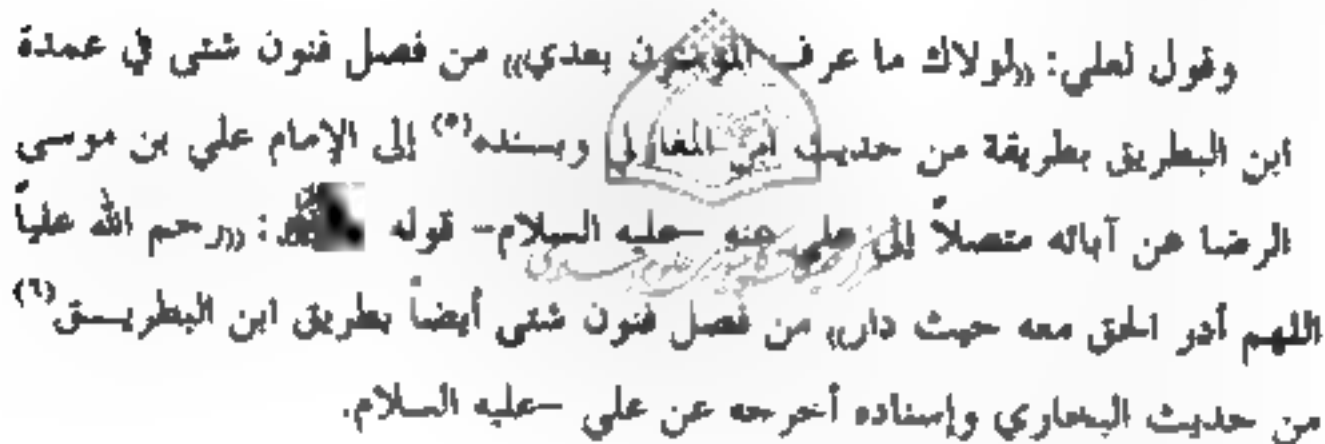 وقول لعلي: ((لولاك ما عرف المؤمنون بعدي)) من فصل فنون شتى في عمدة
ابن البطريق بطريقة من حديث ابن المغازلي وبسنده(٥) إلى الإمام علي بن موسى
الرضا عن آبائه متصلاً إلى علي عنه -عليه السلام- قوله : ((رحم الله علياً
اللهم أدر الحق معه حيث دار)) من فصل فنون شتى أيضاً بطريق ابن البطريـــق(٦)
من حديث البخاري وإسناده أخرجه عن علي -عليه السلام.